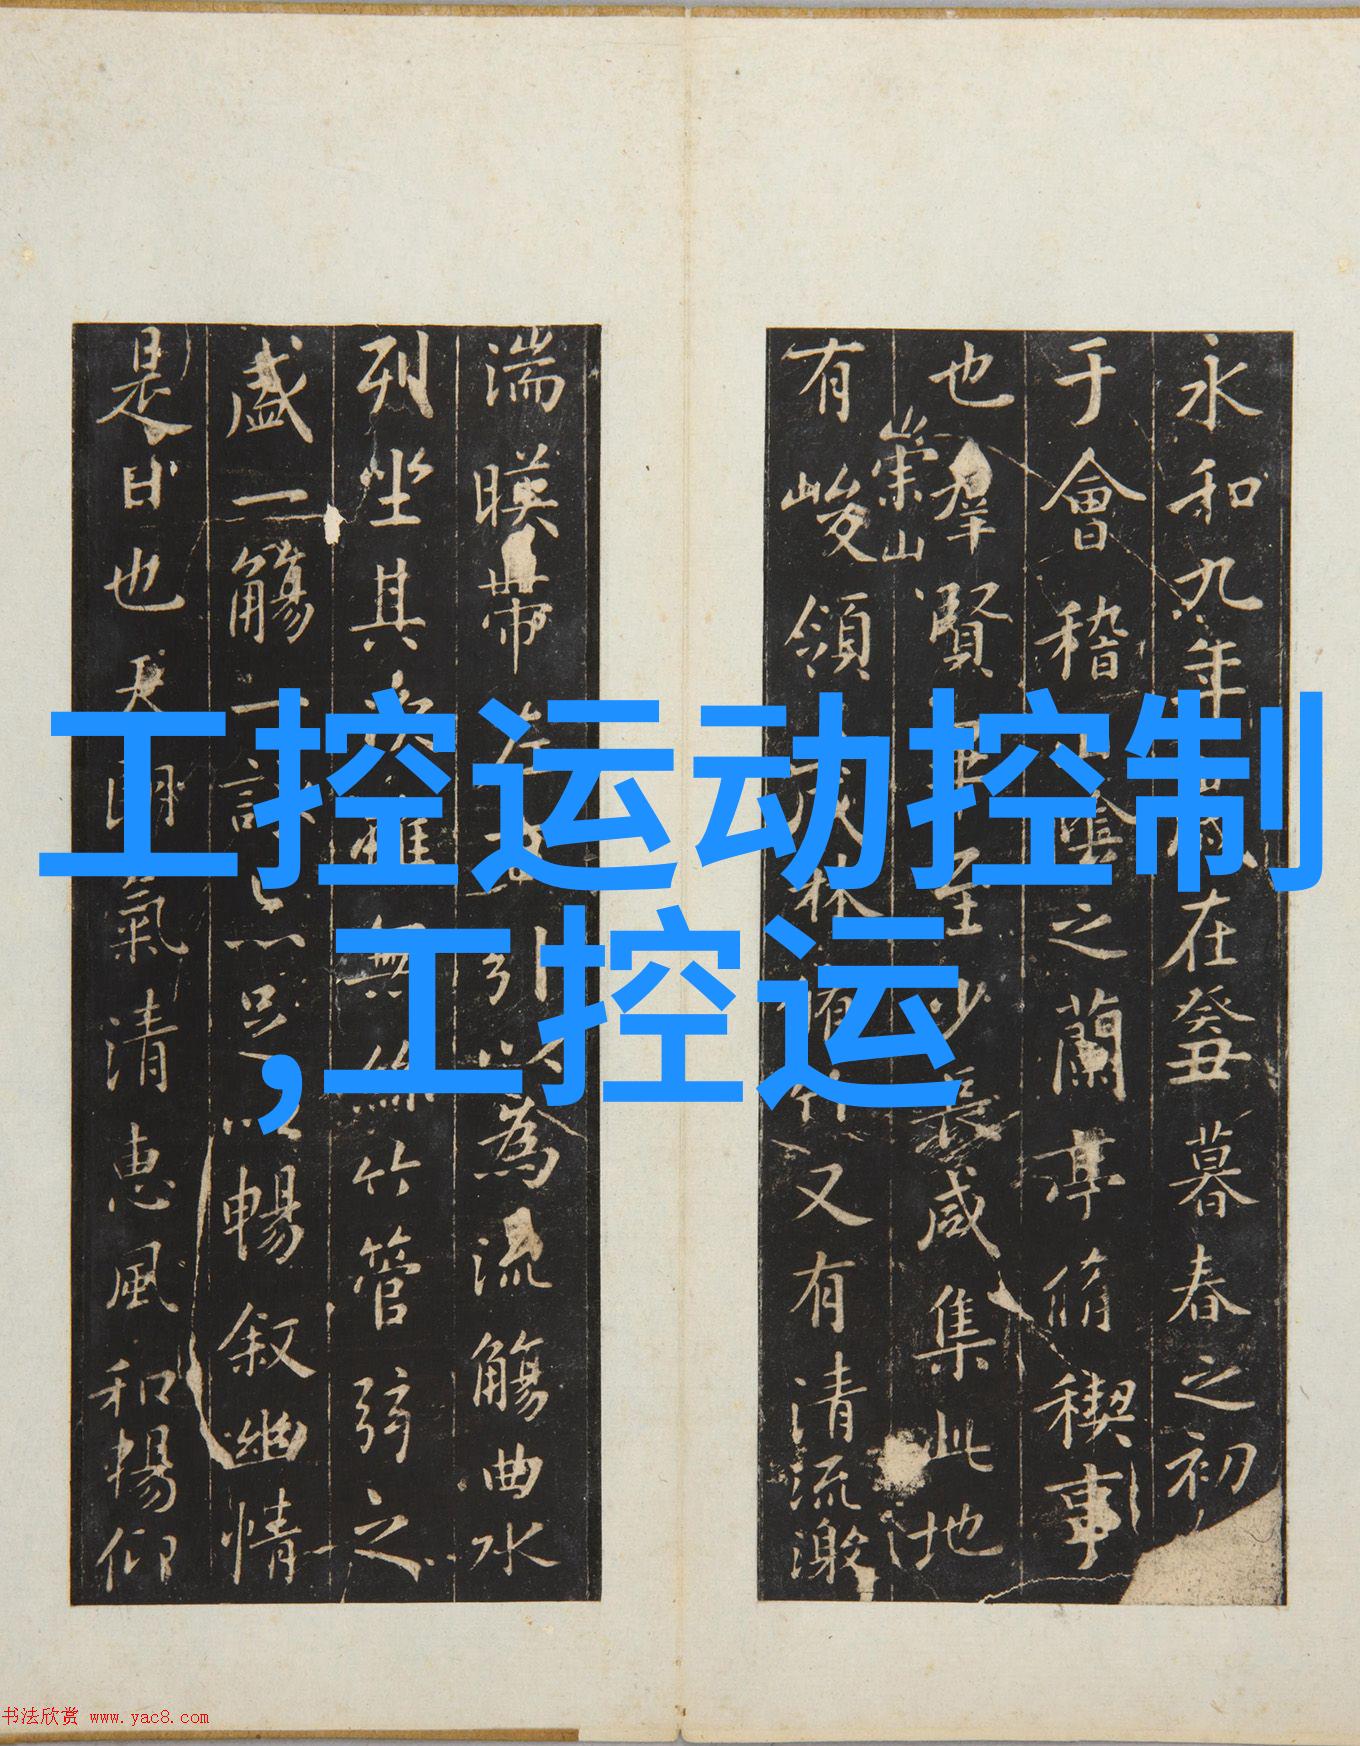 永和九年在癸丑暮春之初
于會稽山陰之蘭亭脩禊事
也羣賢畢至少長咸集此地
有崇山峻領茂林脩竹又有清流激
湍暎帶左右引以為流觴曲水
列坐其次雖無絲竹管弦之
盛一觴一詠亦足以暢敘幽情
是日也天朗氣清惠風和暢仰
工控运动控制
,工控运
书法欣赏 www.yac8.com